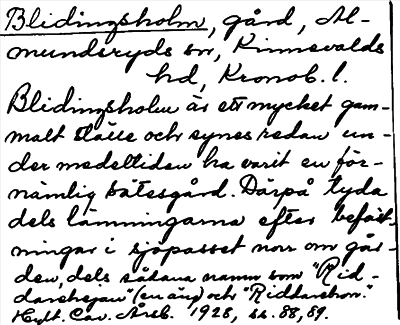 Blidingsholm, gård, Al-
mundsryds sn, Kinnevalds
hd, Kronob. l.
Blidingsholm är ett mycket gam-
malt ställe och synes redan un-
der medeltiden ha varit en för-
nämlig sätesgård. Därpå tyda
dels lämningarna efter befäst-
ningar i sjöpasset norr om går-
den, dels sådana namn som "Rid-
darehejan" (en äng) och "Riddarebron."
Hylt. Cav. Årsb. 1928, ss. 88, 89.